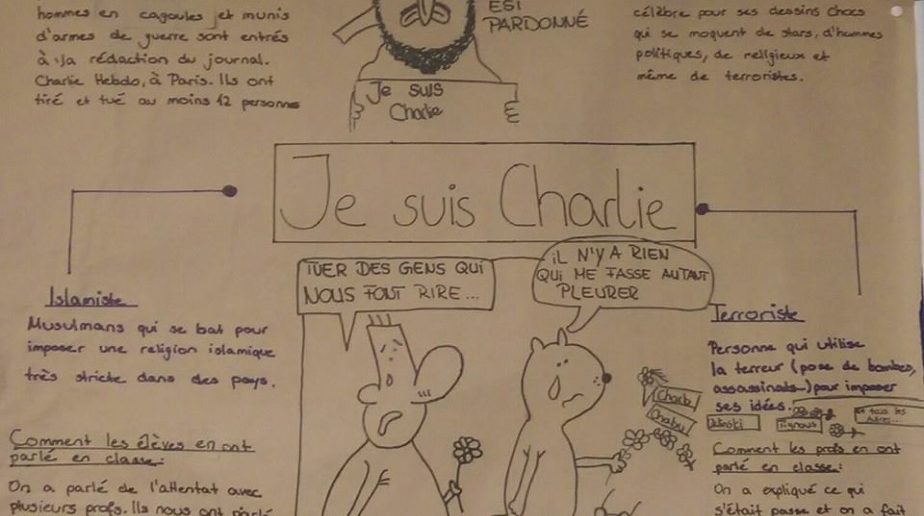 hommes en cagoules et munis
d'armes de guerre sont entrés
à la rédaction du journal.
Charlie Hebdo, à Paris. Ils ont
tiré et tué au moins 12 personnes
EST
PARDONNÉ
Je suis
Charlie
célèbre pour ses dessins chocs
qui se moquent de stars, d'hommes
politiques, de religieux et
même de terroristes.
Je suis Charlie
Islamiste
Musulmans qui se bat pour
imposer une religion islamique
très stricte dans des pays.
Comment les élèves en ont
parlé en classe:
On a parlé de l'attentat avec
plusieurs profs. Ils nous ont parlé
TUER DES GENS QUI
NOUS FONT RIRE...
IL N'Y A RIEN
QUI ME FASSE AUTANT
PLEURER
Charb
Cabu
Wolinski
Tignous
et tous les
autres...
Terroriste
Personne qui utilise
la terreur (pose de bombes,
assassinats...) pour imposer
ses idées.
Comment les profs en ont
parlé en classe:
On a expliqué ce qui
s'était passé et on a fait